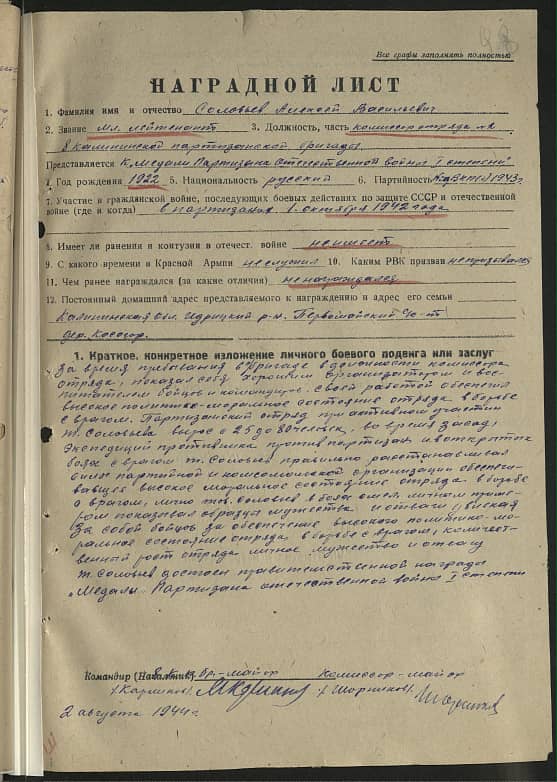 Все графы заполнять полностью
НАГРАДНОЙ ЛИСТ
1. Фамилия имя и отчество Соловьев Алексей Васильевич
2. Звание Мл. лейтенант 3. Должность, часть комиссар отряда №2
8 Калининской партизанской бригады
Представляется К, Медали, Партизана отечественной войны I степени"
4. Год рождения 1922 5. Национальность русский 6. Партийность Кд ВКП(б) 1943г.
7. Участие в гражданской войне, последующих боевых действиях по защите СССР и отечественной
войне (где и когда) в партизанах 1. октября 1942 года
8. Имеет ли ранения и контузии в отечест. войне неимеет
9. С какого времени в Красной Армии неслужил 10. Каким РВК призван непризывался
11. Чем ранее награждался (за какие отличия) ненаграждался
12. Постоянный домашний адрес представляемого к награждению и адрес его семьи
Калининская обл. Идрицкий р-н. Первомайский с-т
дер. Кососор.
1. Краткое, конкретное изложение личного боевого подвига или заслуг
За время пребывания в бригаде в должности комиссара
отряда, показал себя хорошим организатором и вос-
питателем бойцов и командиров. Своей работой обеспечил
высокое политико-моральное состояние отряда в борьбе
с врагом. Партизанский отряд при активном участии
т. Соловьева вырос с 25 до 80 человек, во время засад,
экспедиций противника против партизан и в открытых
боях с врагом т. Соловьев правильно расстанавливал
силы партийной и комсомольской организации обеспечи-
вающее высокое моральное состояние отряда в борьбе
с врагом, лично тов. Соловьев в боях смел. личным приме-
ром показывал образцы мужества и отваги увлекая
за собой бойцов за обеспечение высокого политико-мо-
рального состояние отряда в борьбе с врагом, количест-
венный рост отряда личное мужество и отвагу
т. Соловьев достоен правительственной награды
"Медаль" Партизана отечественной войны I степени
Командир (Начальник) 8 К. п. бр.-майор комиссар-майор
/Карликов/ /Шорников/
2 августа 1944 г.